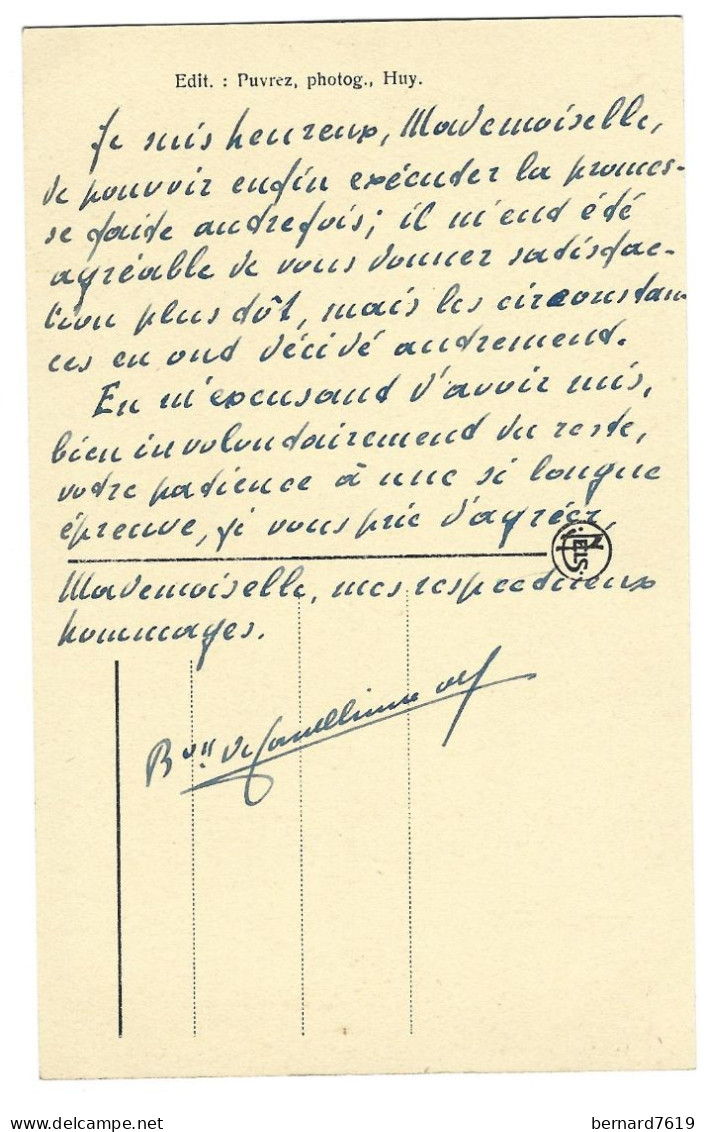 Edit. : Puvrez, photog., Huy.
Je suis heureux, Mademoiselle,
de pouvoir enfin exécuter la promes-
se faite autrefois; il m'eut été
agréable de vous donner satisfac-
tion plus tôt, mais les circonstan-
ces en ont décidé autrement.
En m'excusant d'avoir mis,
bien involontairement du reste,
votre patience à une si longue
épreuve, je vous prie d'agréer,
NELS
Mademoiselle, mes respectueux
hommages.
Bon de
bernard7619